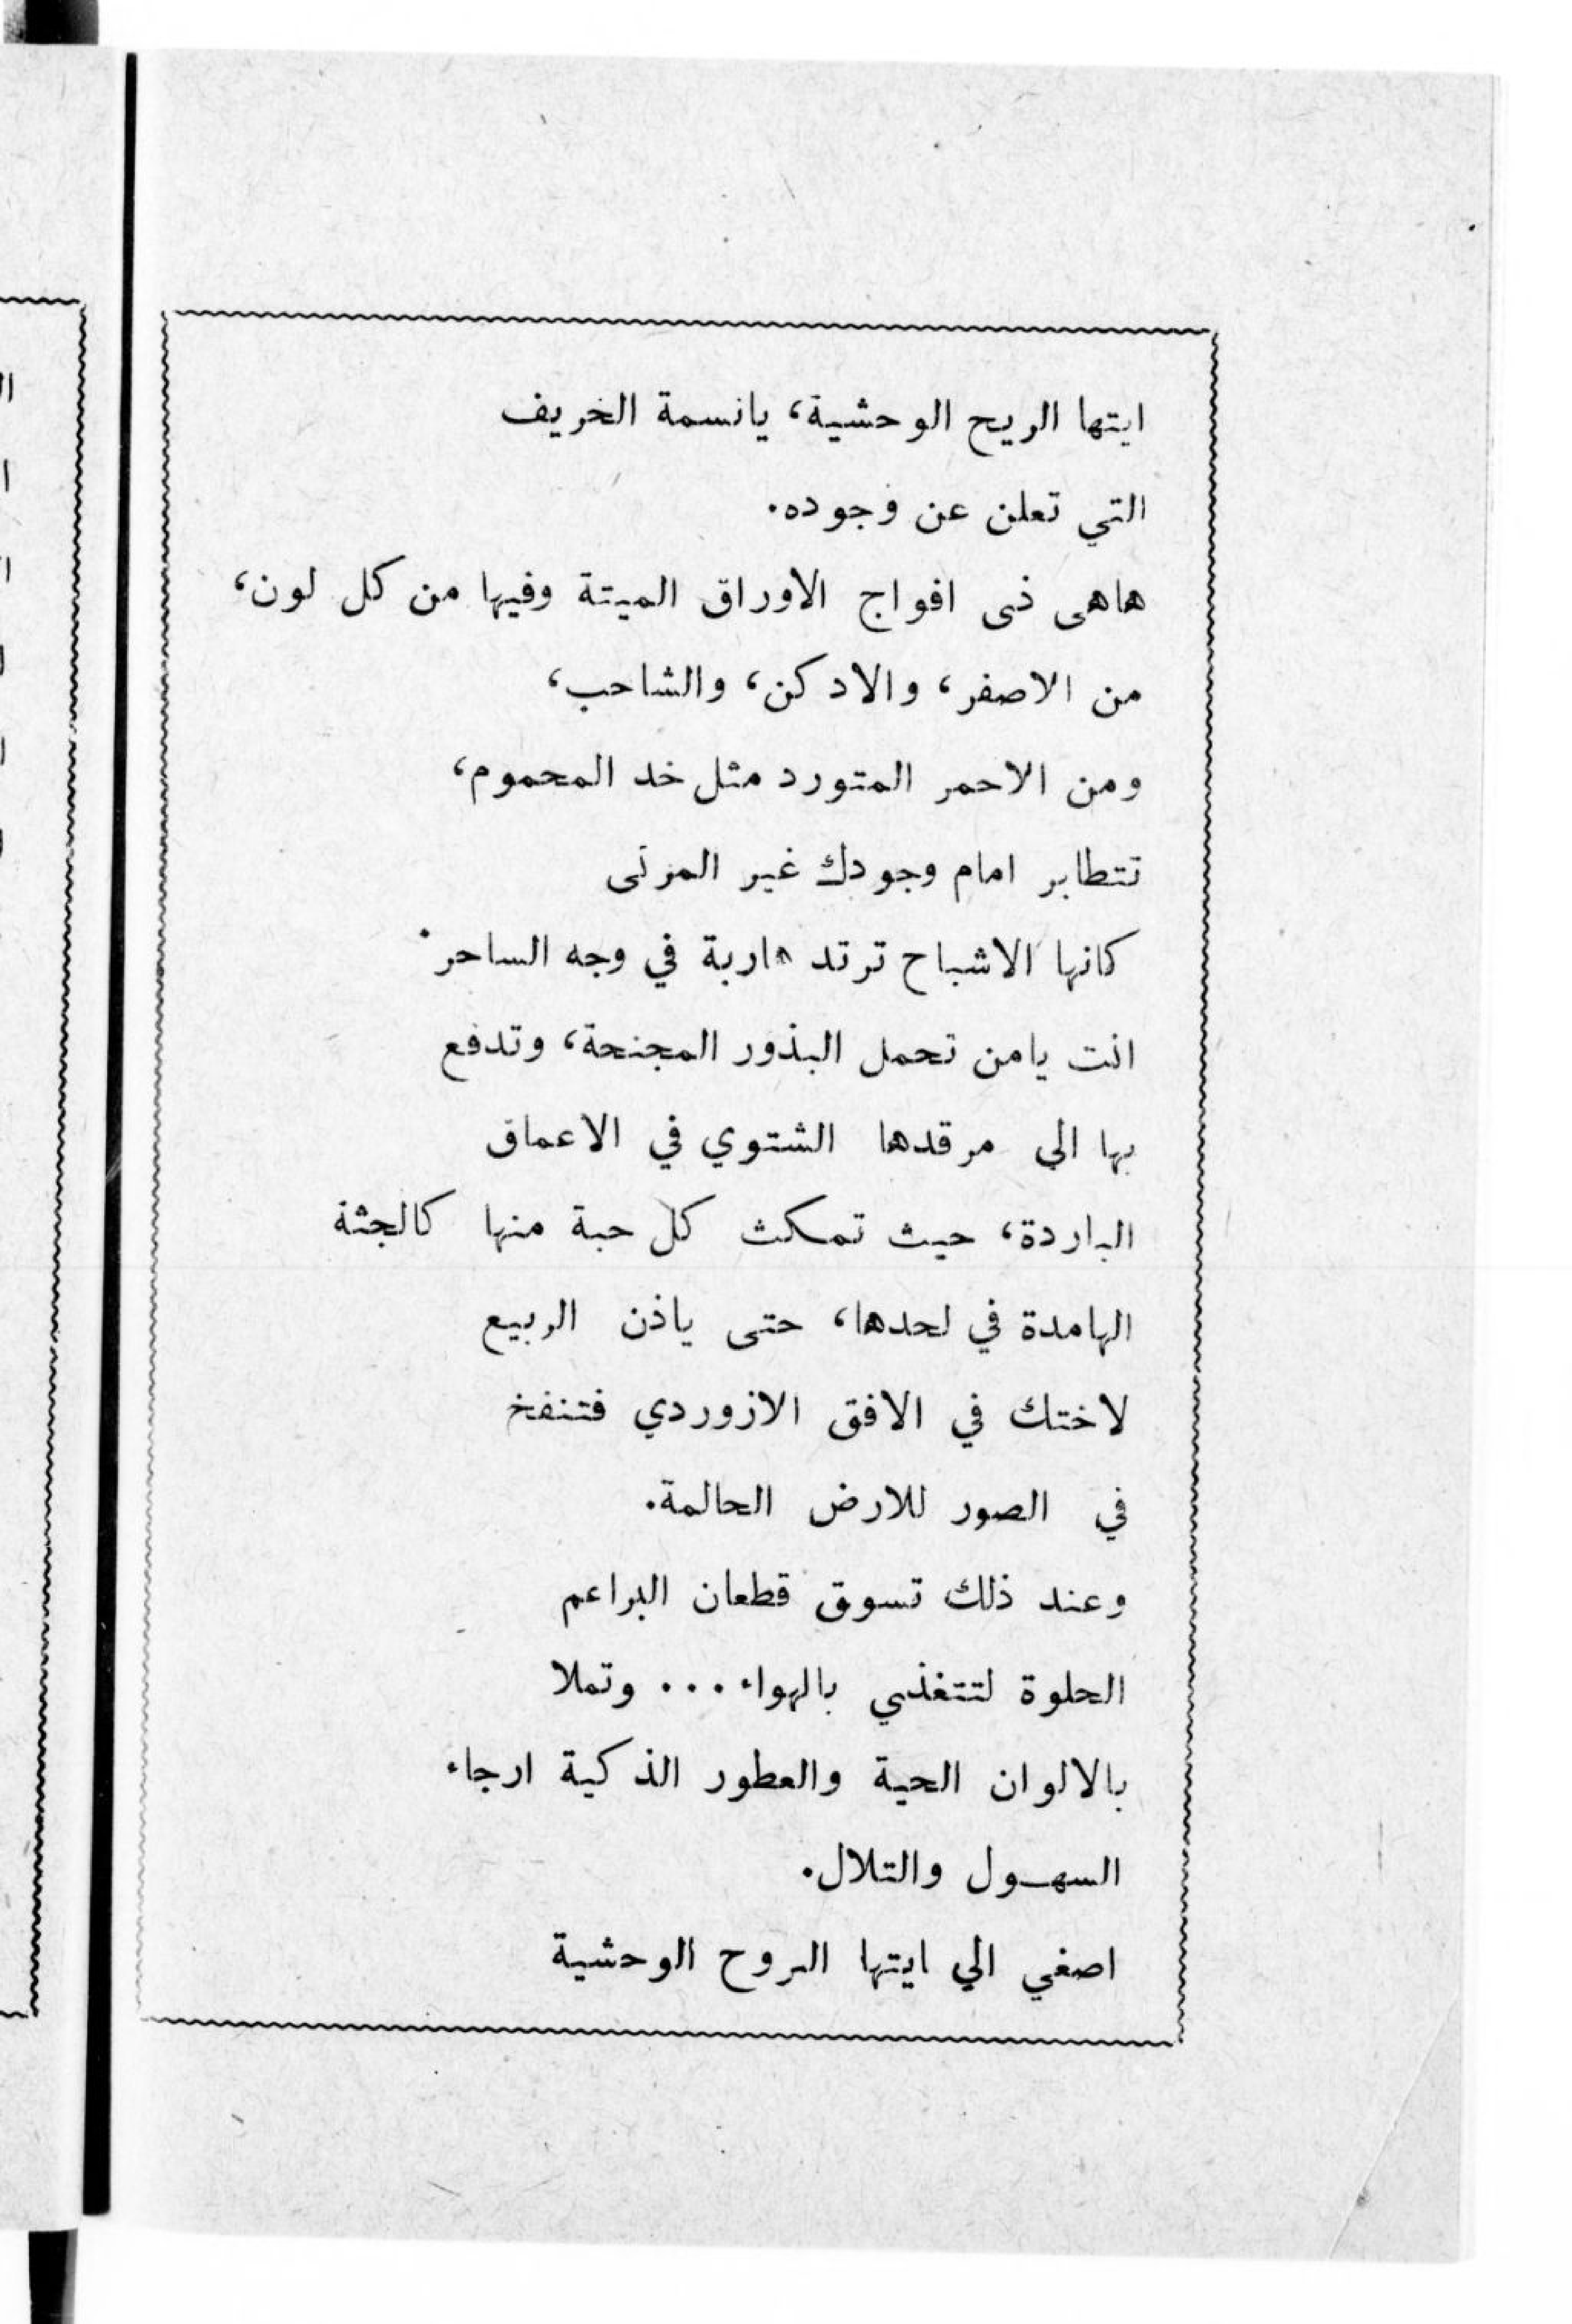 ايتها الريح الوحشية، يانسمة الخريف
التي تعلن عن وجوده.
هاهى ذى افواج الاوراق الميتة وفيها من كل لون،
من الاصفر، والادكن، والشاحب،
ومن الاحمر المتورد مثل خد المحموم،
تتطاير امام وجودك غير المرئى
كانها الاشباح ترتد هاربة في وجه الساحر.
انت يامن تحمل البذور المجنحة، وتدفع
بها الى مرقدها الشتوي في الاعماق
الباردة، حيث تمكث كل حبة منها كالجثة
الهامدة في لحدها، حتى ياذن الربيع
لاختك في الافق الازوردي فتنفخ
في الصور للارض الحالمة.
وعند ذلك تسوق قطعان البراعم
الحلوة لتتغذي بالهواء... وتملا
بالالوان الحية والعطور الذكية ارجاء
السهـول والتلال.
اصغي الي ايتها الروح الوحشية